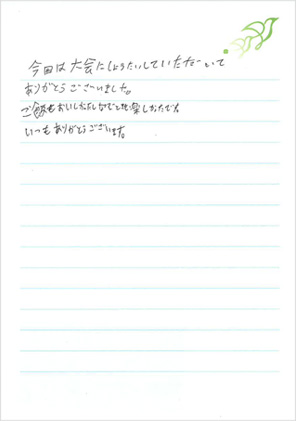 今回は大会にしょうたいしていただいて
ありがとうございました。
ご飯もおいしかったしとても楽しかったです。
いつもありがとうございます。